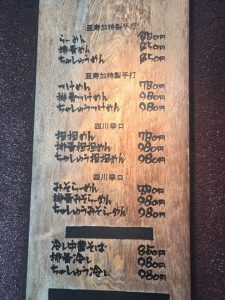 亜寿加特製手打
らーめん
排骨めん 850
ちゃしゅうめん 850
亜寿加特製手打
つけめん 780
排骨つけめん 980
ちゃしゅうつけめん 980
四川辛口
担担めん
排骨担担めん 980
ちゃしゅう担担めん 980
四川辛口
みそらーめん
排骨みそらーめん 980
ちゃしゅうみそらーめん 980
冷し中華そば 850
排骨冷し 980
ちゃしゅう冷し 980